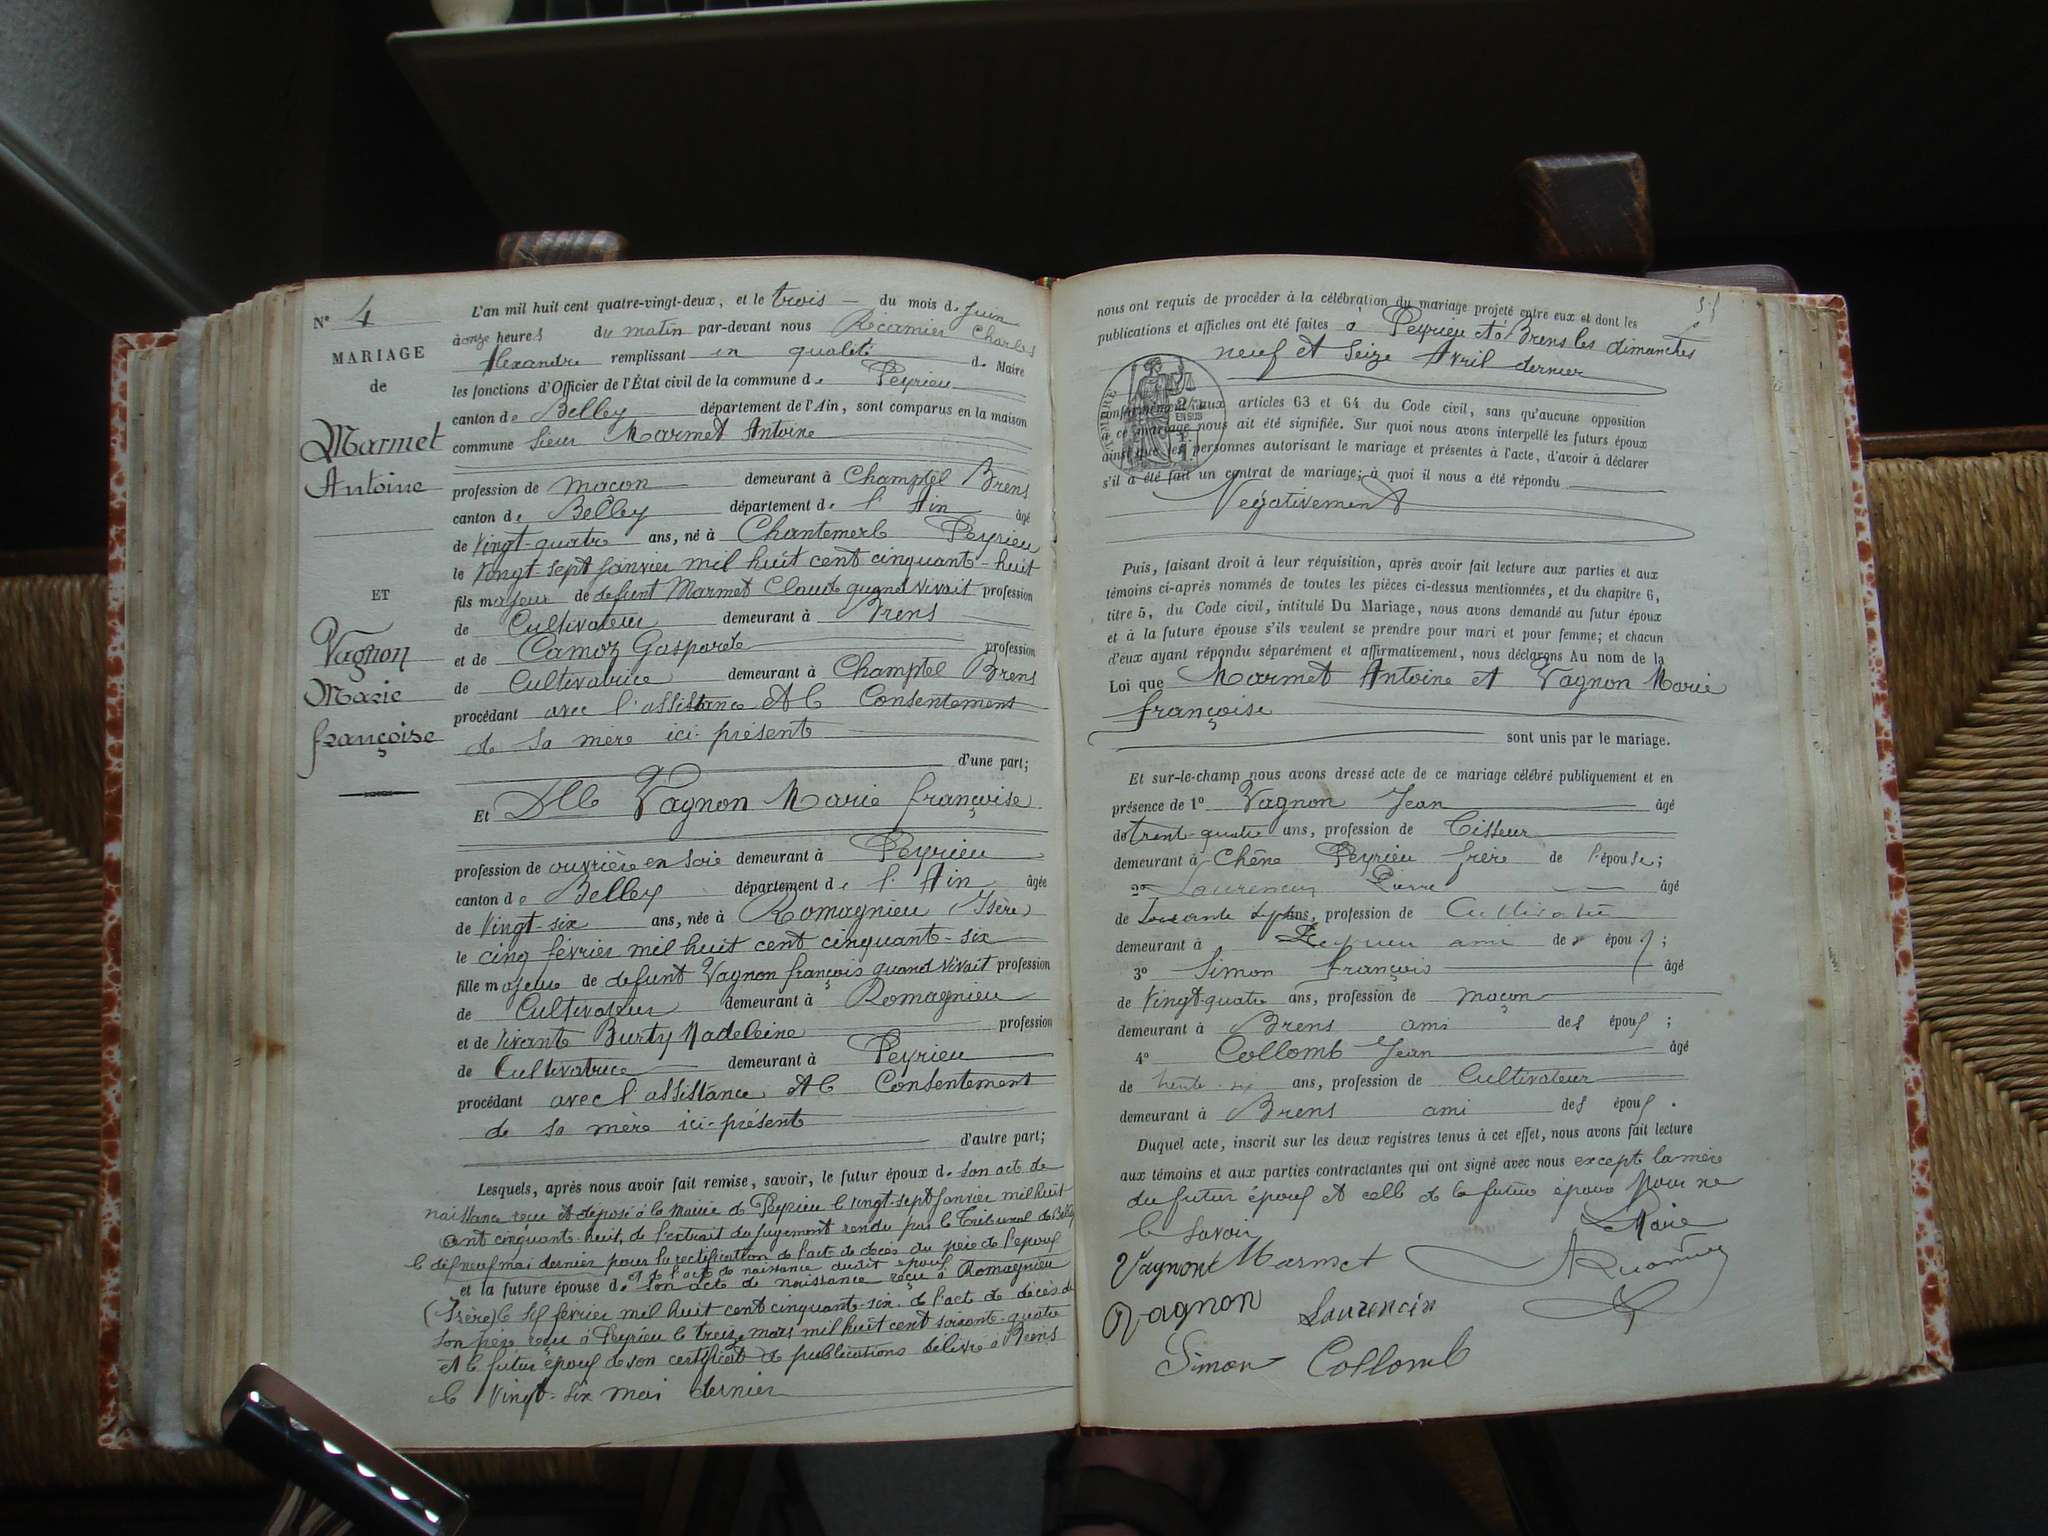 N° 4
MARIAGE
de
Marmet
Antoine
ET
Vagnon
Marie
françoise
L'an mil huit cent quatre-vingt-deux, et le trois du mois de Juin
à onze heures du matin par-devant nous Récamier Charles
Alexandre remplissant en qualité de Maire
les fonctions d'Officier de l'État civil de la commune de Peyrieu
canton de Belley département de l'Ain, sont comparus en la maison
commune Sieur Marmet Antoine
profession de maçon demeurant à Champtel Brens
canton de Belley département de l'Ain âgé
de Vingt-quatre ans, né à Chantemerle Peyrieu
le Vingt-sept Janvier mil huit cent cinquante-huit
fils majeur de defunt Marmet Claude quand vivait profession
de Cultivateur demeurant à Brens
et de Camoz Gasparde profession
de Cultivatrice demeurant à Champtel Brens
procédant avec l'assistance et le Consentement
de sa mère ici-présente
d'une part;
Et Dlle Vagnon Marie françoise
profession de ouvrière en soie demeurant à Peyrieu
canton de Belley département de l'Ain âgée
de Vingt-six ans, née à Romagnieu (Isère)
le cinq février mil huit cent cinquante-six
fille majeure de defunt Vagnon françois quand vivait profession
de Cultivateur demeurant à Romagnieu
et de vivante Burty Madeleine profession
de Cultivatrice demeurant à Peyrieu
procédant avec l'assistance et le Consentement
de sa mère ici-présente
d'autre part;
Lesquels, après nous avoir fait remise, savoir, le futur époux de son acte de
naissance reçu et déposé à la Mairie de Peyrieu le vingt-sept Janvier mil huit
cent cinquante-huit, de l'extrait du jugement rendu par le Tribunal de Belley
le dix neuf mai dernier pour la rectification de l'acte de décès du père de l'époux
et de l'acte de naissance dudit époux
et la future épouse de son acte de naissance reçu à Romagnieu
(Isère) le six février mil huit cent cinquante-six, de l'acte de décès de
son père reçu à Peyrieu le treize mars mil huit cent soixante-quatre
et le futur époux de son certificat de publications délivré à Brens
le vingt-six mai dernier
nous ont requis de procéder à la célébration du mariage projeté entre eux et dont les
publications et affiches ont été faites à Peyrieu et à Brens les dimanches
neuf et seize Avril dernier
TIMBRE
conformément aux articles 63 et 64 du Code civil, sans qu'aucune opposition
à ce mariage nous ait été signifiée. Sur quoi nous avons interpellé les futurs époux
ainsi que les personnes autorisant le mariage et présentes à l'acte, d'avoir à déclarer
s'il a été fait un contrat de mariage; à quoi il nous a été répondu
Négativement
Puis, faisant droit à leur réquisition, après avoir fait lecture aux parties et aux
témoins ci-après nommés de toutes les pièces ci-dessus mentionnées, et du chapitre 6,
titre 5, du Code civil, intitulé Du Mariage, nous avons demandé au futur époux
et à la future épouse s'ils veulent se prendre pour mari et pour femme; et chacun
d'eux ayant répondu séparément et affirmativement, nous déclarons Au nom de la
Loi que Marmet Antoine et Vagnon Marie
françoise
sont unis par le mariage.
Et sur-le-champ nous avons dressé acte de ce mariage célébré publiquement et en
présence de 1° Vagnon Jean âgé
de trente-quatre ans, profession de Tisseur
demeurant à Chêne Peyrieu frère de l'épouse;
2° Laurencin Pierre âgé
de ans, profession de Cultivateur
demeurant à Peyrieu ami des époux;
3° Simon françois âgé
de Vingt-quatre ans, profession de maçon
demeurant à Brens ami des époux;
4° Collomb Jean âgé
de trente-six ans, profession de Cultivateur
demeurant à Brens ami des époux.
Duquel acte, inscrit sur les deux registres tenus à cet effet, nous avons fait lecture
aux témoins et aux parties contractantes qui ont signé avec nous excepté la mère
du futur époux et celle de la future épouse pour ne
le savoir
Le Maire
Vagnon Marmet
Vagnon Laurencin
Simon Collomb